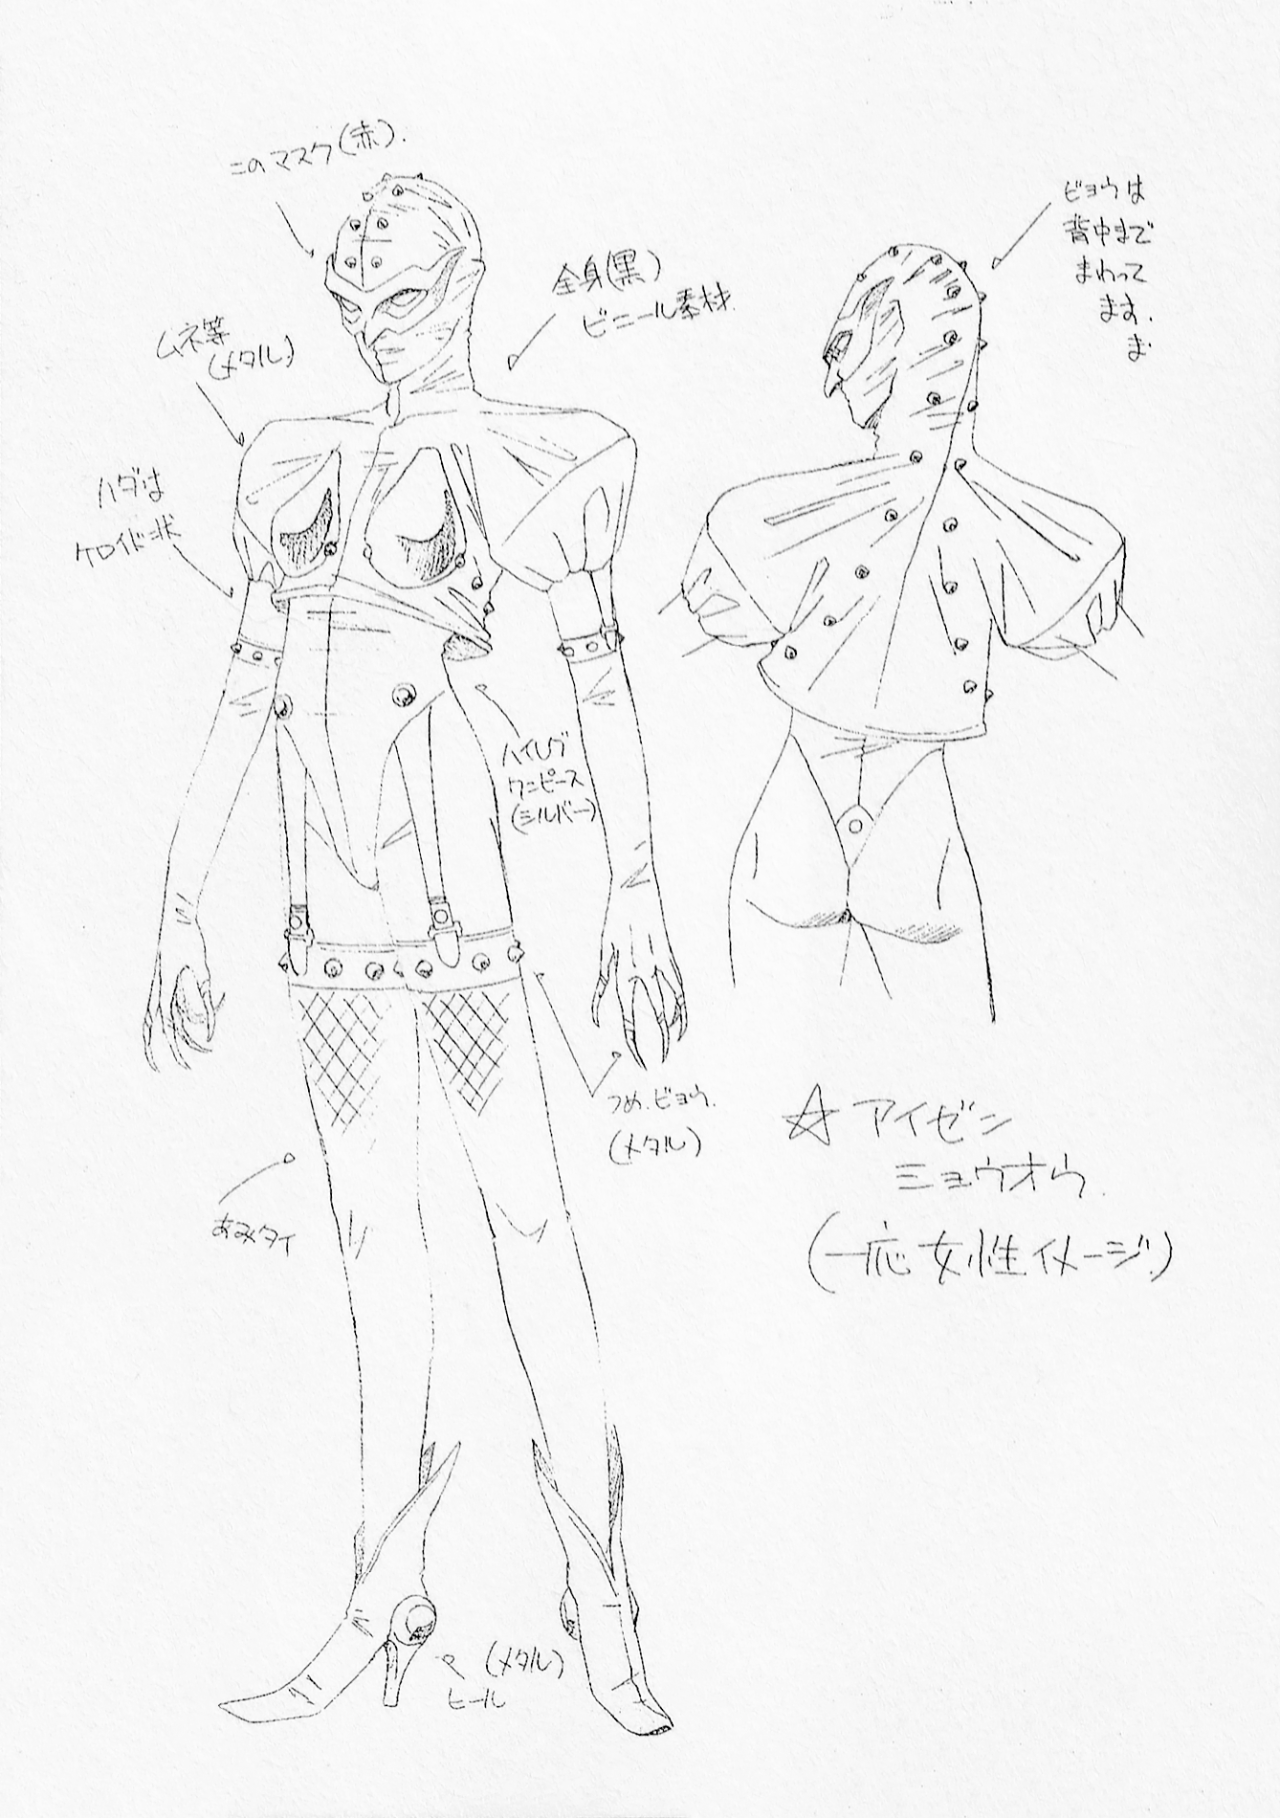 このマスク(赤).
全身(黒)
ビニール素材.
ムネ等
(メタル)
ハダは
ケロイド状
ビョウは
背中まで
まわって
ます.
ハイレグ
ワンピース
(シルバー)
つめ.ビョウ.
(メタル)
あみタイ
(メタル)
ヒール
☆アイゼン
ミョウオウ.
(一応女性イメージ.)